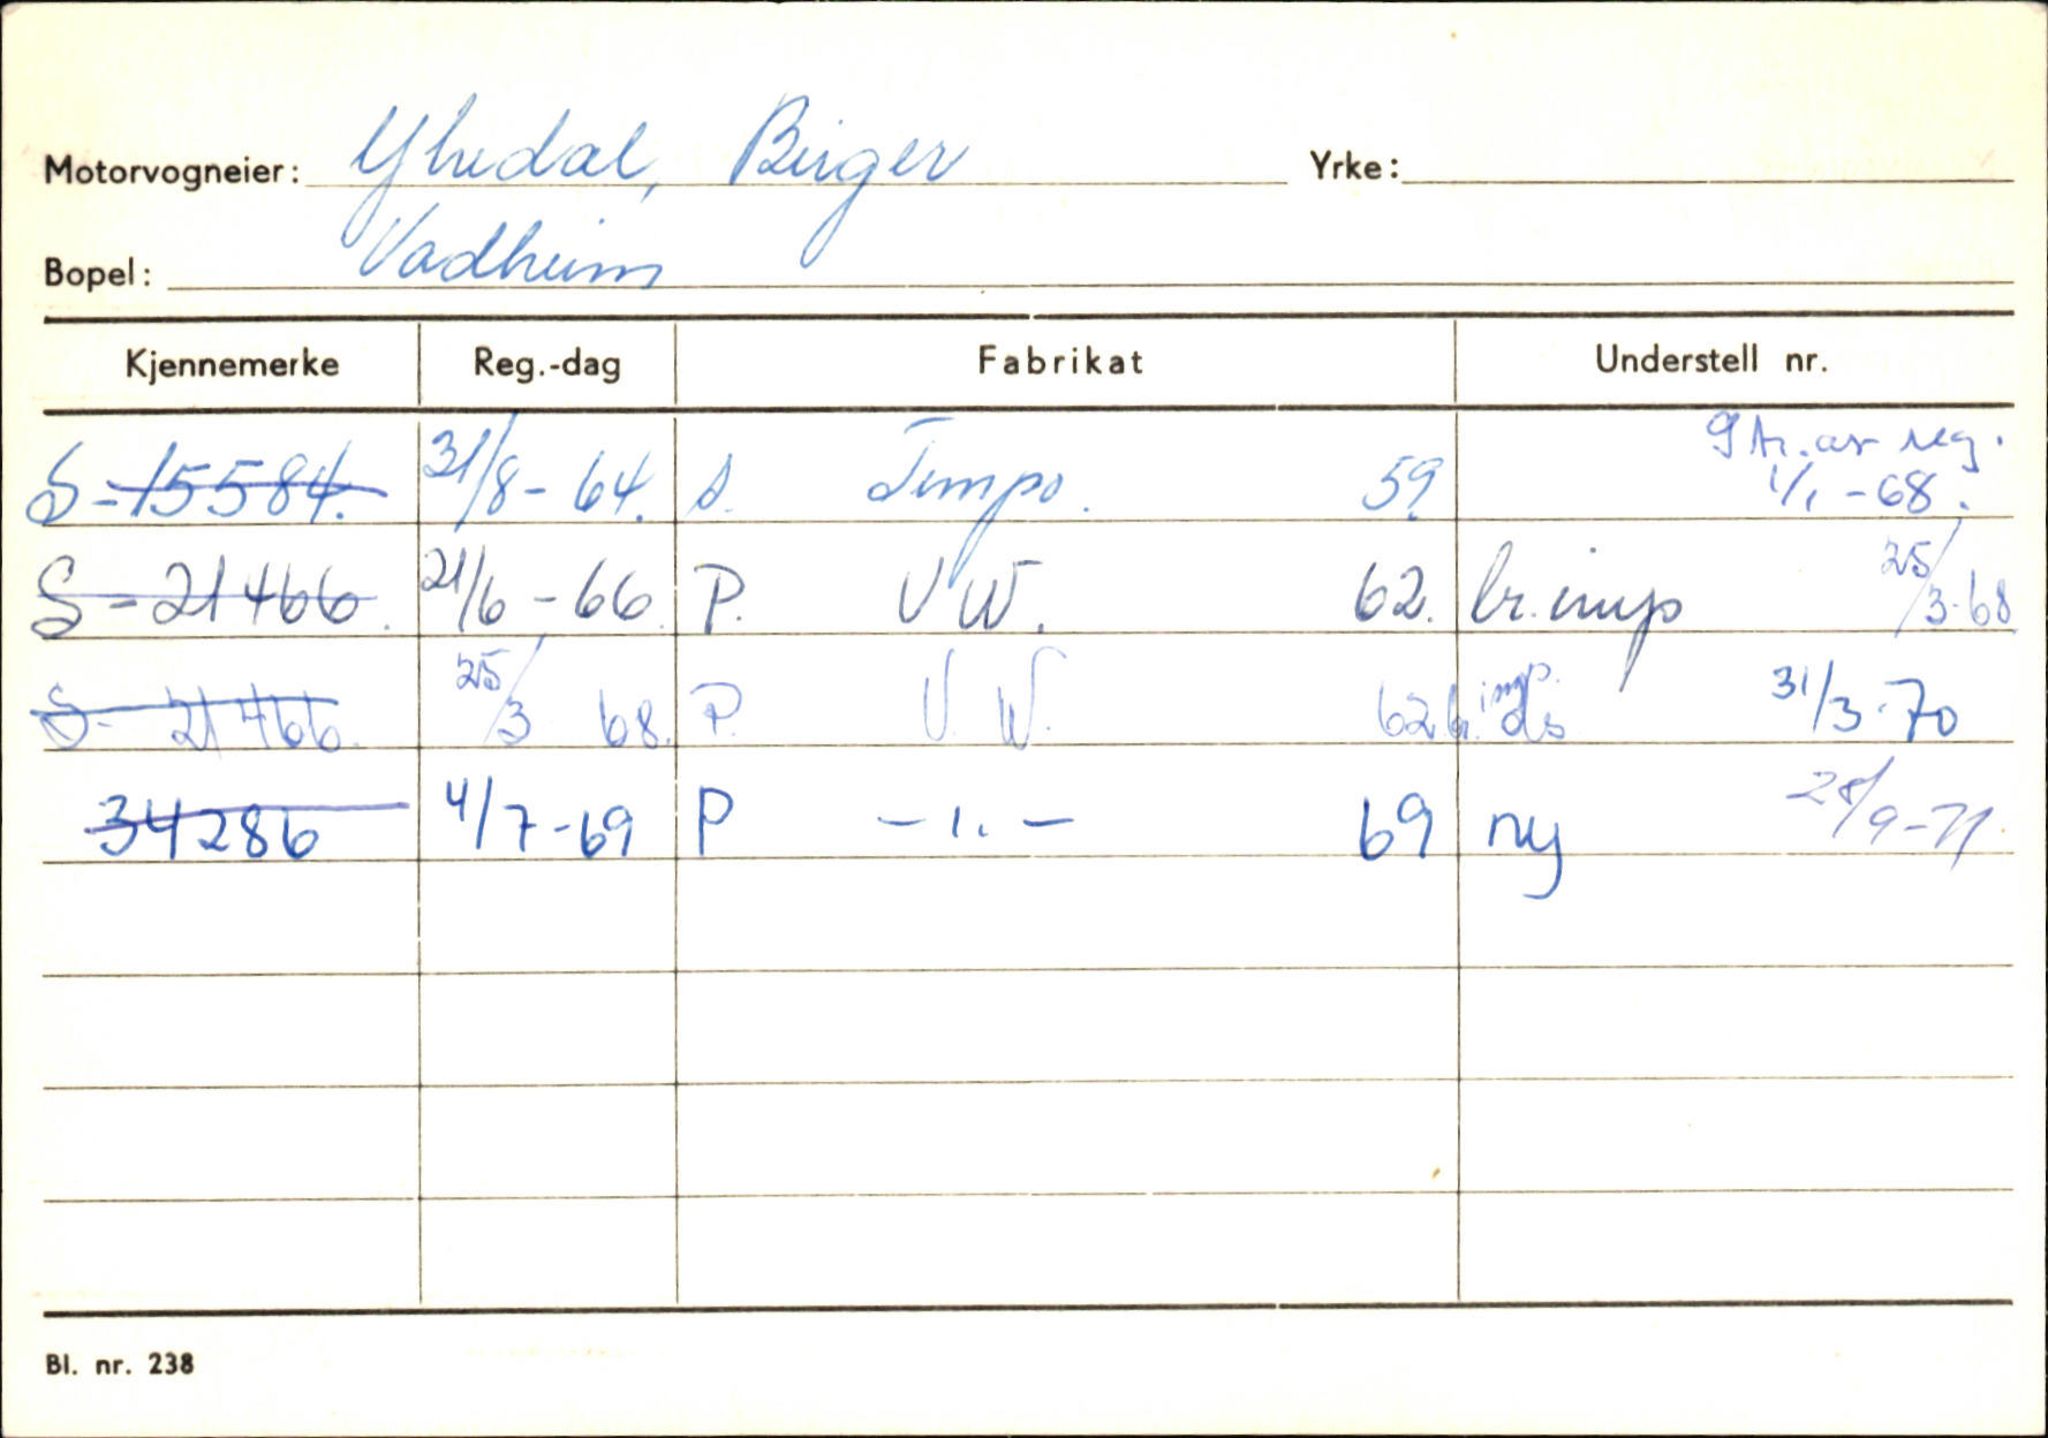 Motorvogneier: Ytredal, Birger Yrke:
Bopel: Vadheim
Kjennemerke Reg.-dag Fabrikat Understell nr.
S-15584. 31/8-64. s. Tempo. 59. av reg. 1/1-68.
S-21466. 21/6-66. P. VW. 62. br.imp 25/3-68
S-21466. 25/3 68. P. V.W. 62 br. imp. 31/3-70
34286 4/7-69 P -"- 69 ny 28/9-71
Bl. nr. 238